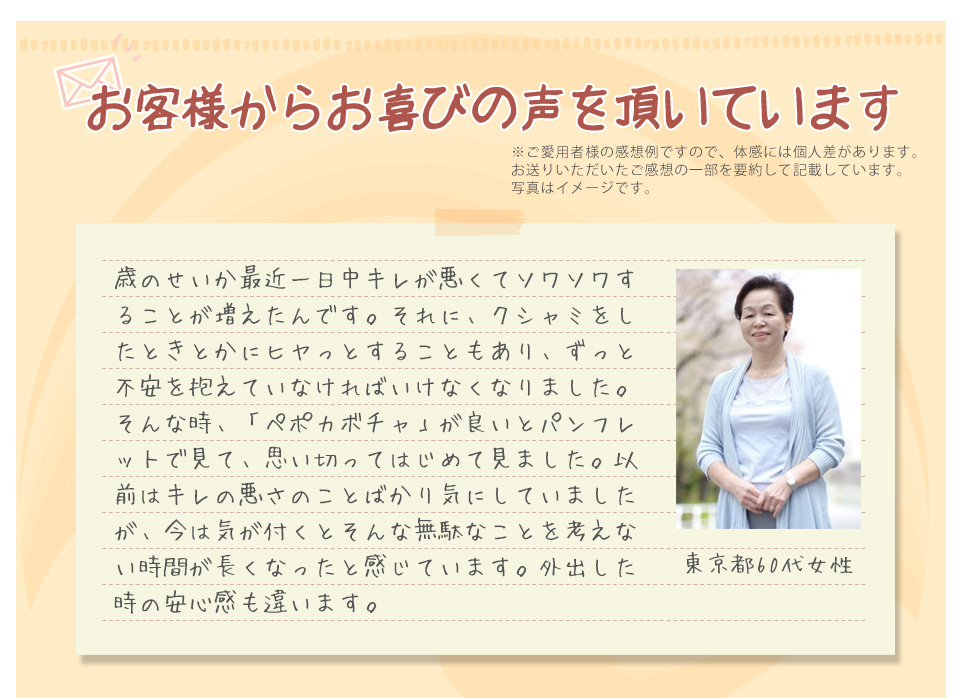 お客様からお喜びの声を頂いています
※ご愛用者様の感想例ですので、体感には個人差があります。
お送りいただいたご感想の一部を要約して記載しています。
写真はイメージです。
歳のせいか最近一日中キレが悪くてソワソワす
ることが増えたんです。それに、クシャミをし
たときとかにヒヤっとすることもあり、ずっと
不安を抱えていなければいけなくなりました。
そんな時、「ペポカボチャ」が良いとパンフレ
ットで見て、思い切ってはじめて見ました。以
前はキレの悪さのことばかり気にしていました
が、今は気が付くとそんな無駄なことを考えな
い時間が長くなったと感じています。外出した
時の安心感も違います。
東京都60代女性